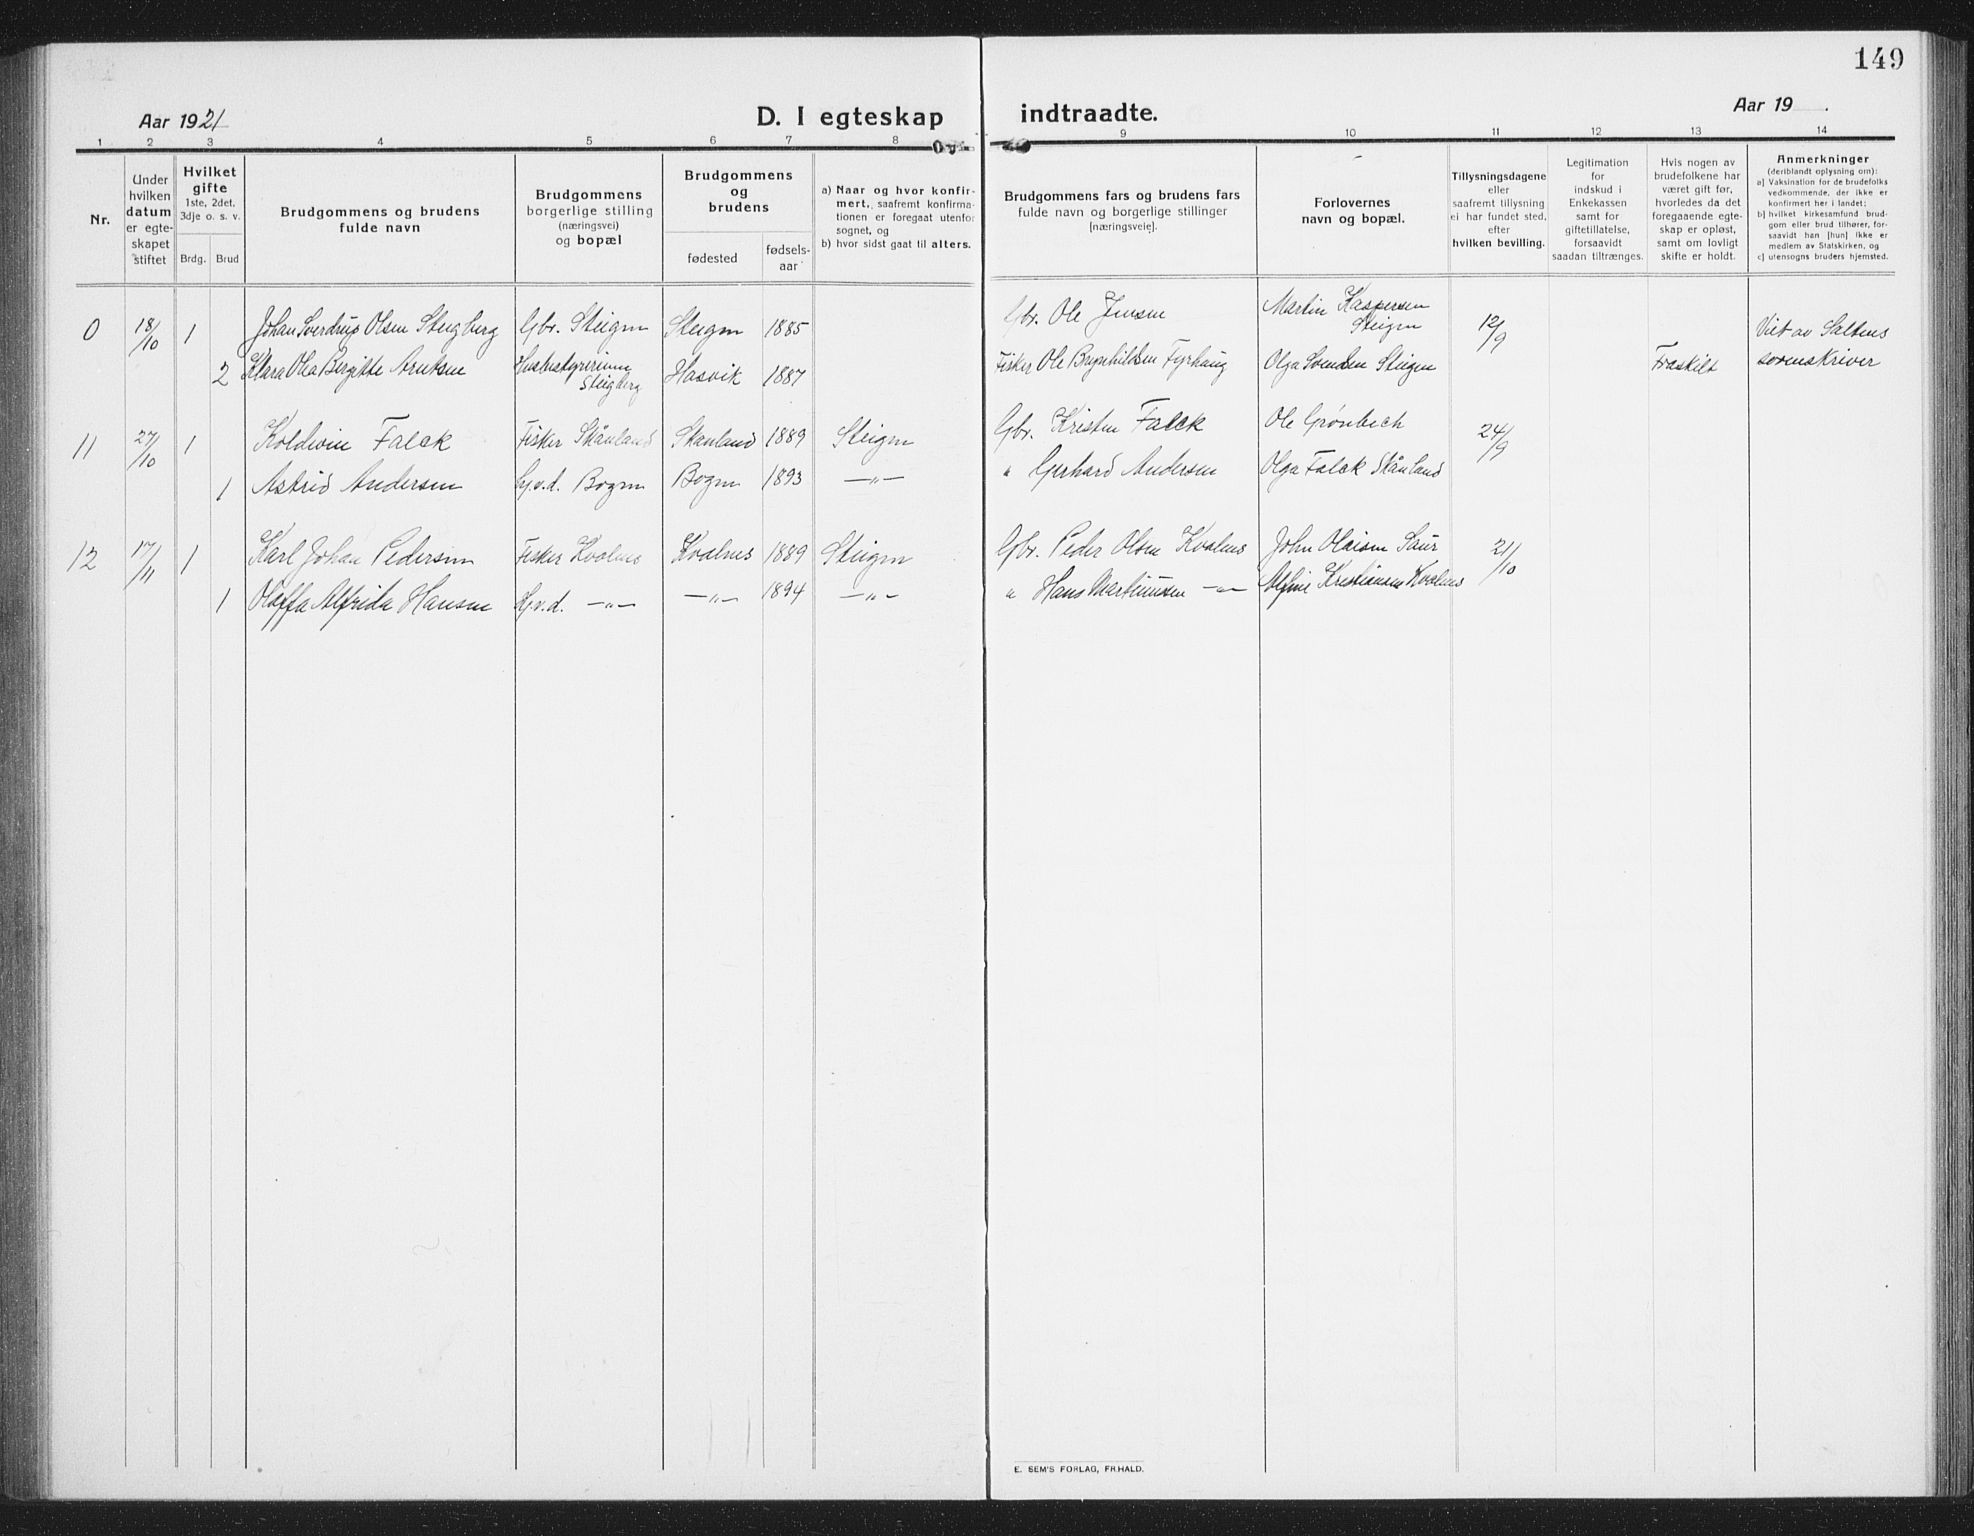 149
Aar 1921
D. I egteskap indtraadte.
Aar 19 .
1 2 3 4 5 6 7 8 9 10 11 12 13 14
Nr.
Under hvilken datum er egteskapet stiftet
Hvilket gifte
1ste, 2det, 3dje o. s. v.
Brdg. Brud
Brudgommens og brudens fulde navn
Brudgommens borgerlige stilling (næringsvei) og bopæl
Brudgommens og brudens
fødested
fødsels-aar
a) Naar og hvor konfir-
mert, saafremt konfirma-
tionen er foregaat utenfor
sognet, og
b) hvor sidst gaat til alters.
Brudgommens fars og brudens fars
fulde navn og borgerlige stillinger
[næringsveie].
Forlovernes
navn og bopæl.
Tillysningsdagene
eller
saafremt tillysning
ei har fundet sted,
efter
hvilken bevilling.
Legitimation
for
indskud i
Enkekassen
samt for
giftetillatelse,
forsaavidt
saadan tiltrænges.
Hvis nogen av
brudefolkene har
været gift før,
hvorledes da det
foregaaende egte-
skap er opløst,
samt om lovligt
skifte er holdt.
Anmerkninger
(deriblandt oplysning om):
a] Vaksination for de brudefolks
vedkommende, der ikke er
konfirmert her i landet;
b] hvilket kirkesamfund brud-
gom eller brud tilhører, for-
saavidt han [hun] ikke er
medlem av Statskirken, og
c] utensogns bruders hjemsted.
0 18/10 1 Johan Sverdrup Olsen Steigberg Gbr. Steigen Steigen 1885 Gbr. Ole Jensen Martin Kaspersen Steigen 12/9 Viet av Saltens
2 Klara Olea Bergitte Arntsen Husbestyrerinne Steigberg Hasvik 1887 Fisker Ole Brynhildsen Fyrhaug Olga Svendsen Steigen Fraskilt sorenskriver
11 27/10 1 Koldevin Falck Fisker Skånland Skanland 1889 Steigen Gbr. Kristen Falck Ole Grønbech 24/9
1 Astrid Andersen Gj.v.d. Bogen Bogen 1893 —"— " Gerhard Andersen Olga Falck Skånland
12 17/11 1 Karl Johan Pedersen Fisker Kvalnes Kvalnes 1889 Steigen Gbr. Peder Olsen Kvalnes John Olaisen Saur 21/10
1 Olaffa Alfrida Hansen Gj.v.d. —"— —"— 1894 —"— " Hans Martinussen —"— Alfine Kristiansen Kvalnes
E. SEM'S FORLAG, FR.HALD.